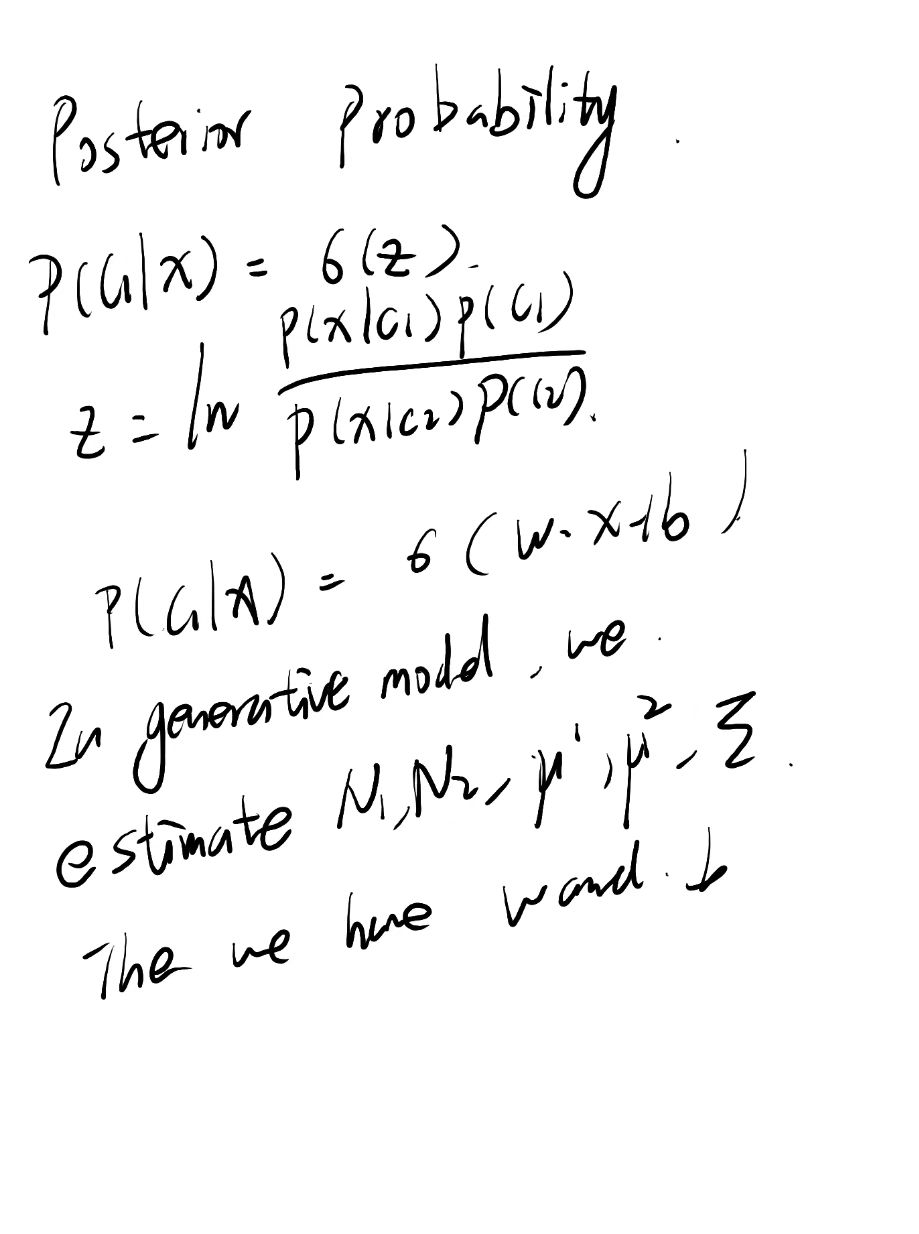 Posterior Probability.
P(C1|x) = σ(z).
z = ln P(x|C1)P(C1) / P(x|C2)P(C2).
P(C1|x) = σ(w·x+b)
In generative model, we.
estimate N1, N2, μ¹, μ², Σ.
The we have w and. b